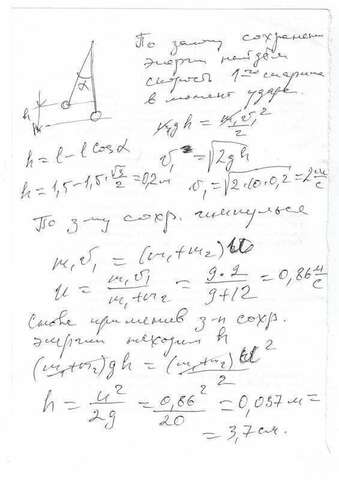 По закону сохранения
энергии найдём
скорость 1го шарика
в момент удара.
α
h
m₁gh = m₁v₁²/2
h = l - l cosα
v₁ = √2gh
h = 1,5 - 1,5·√3/2 = 0,2м
v₁ = √2·10·0,2 = 2 м/с
По з-ну сохр. импульса
m₁v₁ = (m₁+m₂)u
u = m₁v₁/(m₁+m₂) = 9·2/(9+12) = 0,86 м/с
Снова применив з-н сохр.
энергии находим h
(m₁+m₂)gh = (m₁+m₂)u²/2
h = u²/2g = 0,86²/20 = 0,037 м =
= 3,7 см.